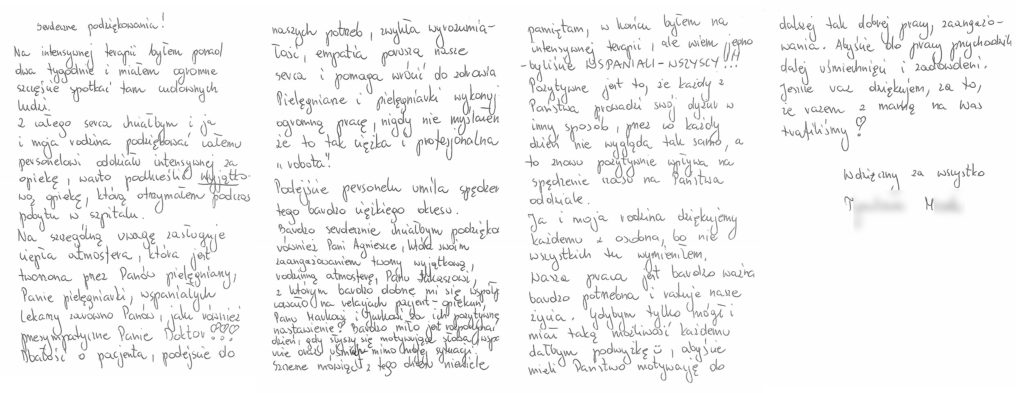 Serdeczne podziękowania!
Na intensywnej terapii byłem ponad
dwa tygodnie i miałem ogromne
szczęście spotkać tam cudownych
ludzi.
Z całego serca chciałbym i ja
i moja rodzina podziękować całemu
personelowi oddziału intensywnej za
opiekę, warto podkreślić wyjątko-
wą opiekę, którą otrzymałem podczas
pobytu w szpitalu.
Na szczególną uwagę zasługuje
ciepła atmosfera, która jest
tworzona przez Panów pielęgniarzy,
Panie pielęgniarki, wspaniałych
Lekarzy zarówno Panów, jak również
przesympatyczne Panie Doktor!♡♡♡
Dbałość o pacjenta, podejście do
naszych potrzeb, zwykła wyrozumia-
łość, empatia porusza nasze
serca i pomaga wrócić do zdrowia
Pielęgniarze i pielęgniarki wykonują
ogromną pracę, nigdy nie myślałem
że to tak ciężka i profesjonalna
„robota".
Podejście personelu umila spędzenie
tego bardzo ciężkiego okresu.
Bardzo serdecznie chciałbym podzięko
również Pani Agnieszce, która swoim
zaangażowaniem tworzy wyjątkową,
rodzinną atmosferę, Panu Łukaszowi,
z którym bardzo dobrze mi się współp
na relacjach pacjent-opiekun,
Panu i za ich pozytywne
nastawienie! Bardzo miło jest rozpoczynać
dzień, gdy słyszy się motywujące słowa, wspa
nie oraz uśmiech mimo mojej sytuacji.
Szczerze mówiąc z tego dnia niewiele
pamiętam, w końcu byłem na
intensywnej terapii, ale wiem jedno
- byliście WSPANIALI - WSZYSCY!!!
Pozytywne jest to, że każdy z
Państwa prowadzi swój dyżur w
inny sposób, przez co każdy
dzień nie wygląda tak samo, a
to znowu pozytywnie wpływa na
spędzenie czasu na Państwa
oddziale.
Ja i moja rodzina dziękujemy
każdemu z osobna, bo nie
wszystkich tu wymieniłem.
Wasza praca jest bardzo ważna
bardzo potrzebna i ratuje nasze
życia. Gdybym tylko mógł i
miał taką możliwość każdemu
dałbym podwyżkę ü, abyście
mieli Państwo motywację do
dalszej tak dobrej pracy, zaangażo-
wania. Abyście do pracy przychodzili
dalej uśmiechnięci i zadowoleni.
Jeszcze raz dziękujem, za to,
że razem z mamą na Was
trafiliśmy ♡!
Wdzięczny za wszystko